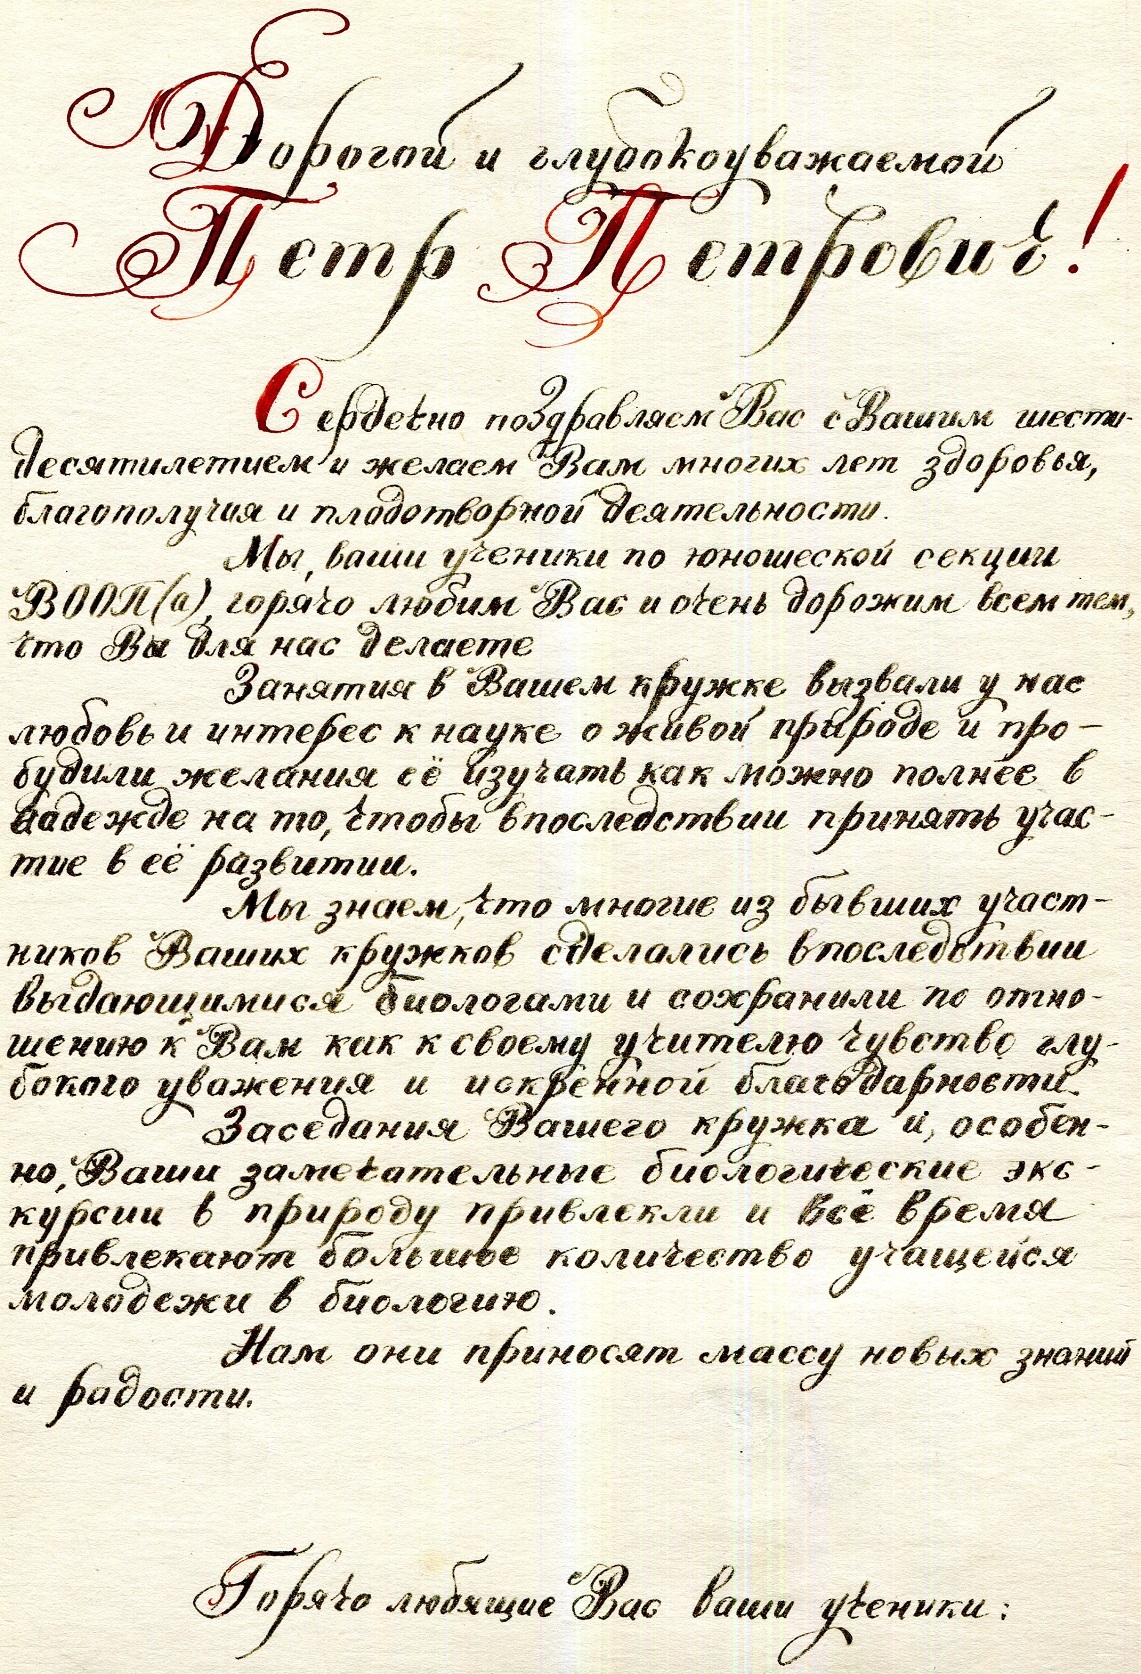 Дорогой и глубокоуважаемой
Петр Петрович!
Сердечно поздравляем Вас с Вашим шести-
десятилетием и желаем Вам многих лет здоровья,
благополучия и плодотворной деятельности.
Мы, ваши ученики по юношеской секции
ВООП(а), горячо любим Вас и очень дорожим всем тем,
что Вы для нас делаете
Занятия в Вашем кружке вызвали у нас
любовь и интерес к науке о живой природе и про-
будили желания её изучать как можно полнее в
надежде на то, чтобы впоследствии принять учас-
тие в её развитии.
Мы знаем, что многие из бывших участ-
ников Ваших кружков сделались впоследствии
выдающимися биологами и сохранили по отно-
шению к Вам как к своему учителю чувство глу-
бокого уважения и искренной благодарности.
Заседания Вашего кружка и, особен-
но, Ваши замечательные биологические экс-
курсии в природу привлекли и всё время
привлекают большое количество учащейся
молодежи в биологию.
Нам они приносят массу новых знаний
и радости.
Горячо любящие Вас ваши ученики: